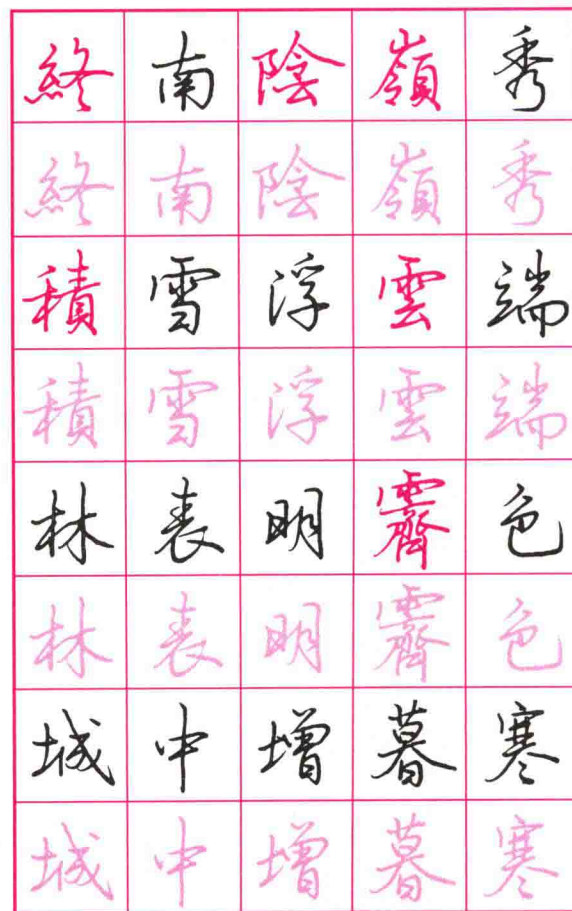 終南陰嶺秀
終南陰嶺秀
積雪浮雲端
積雪浮雲端
林表明霽色
林表明霽色
城中增暮寒
城中增暮寒